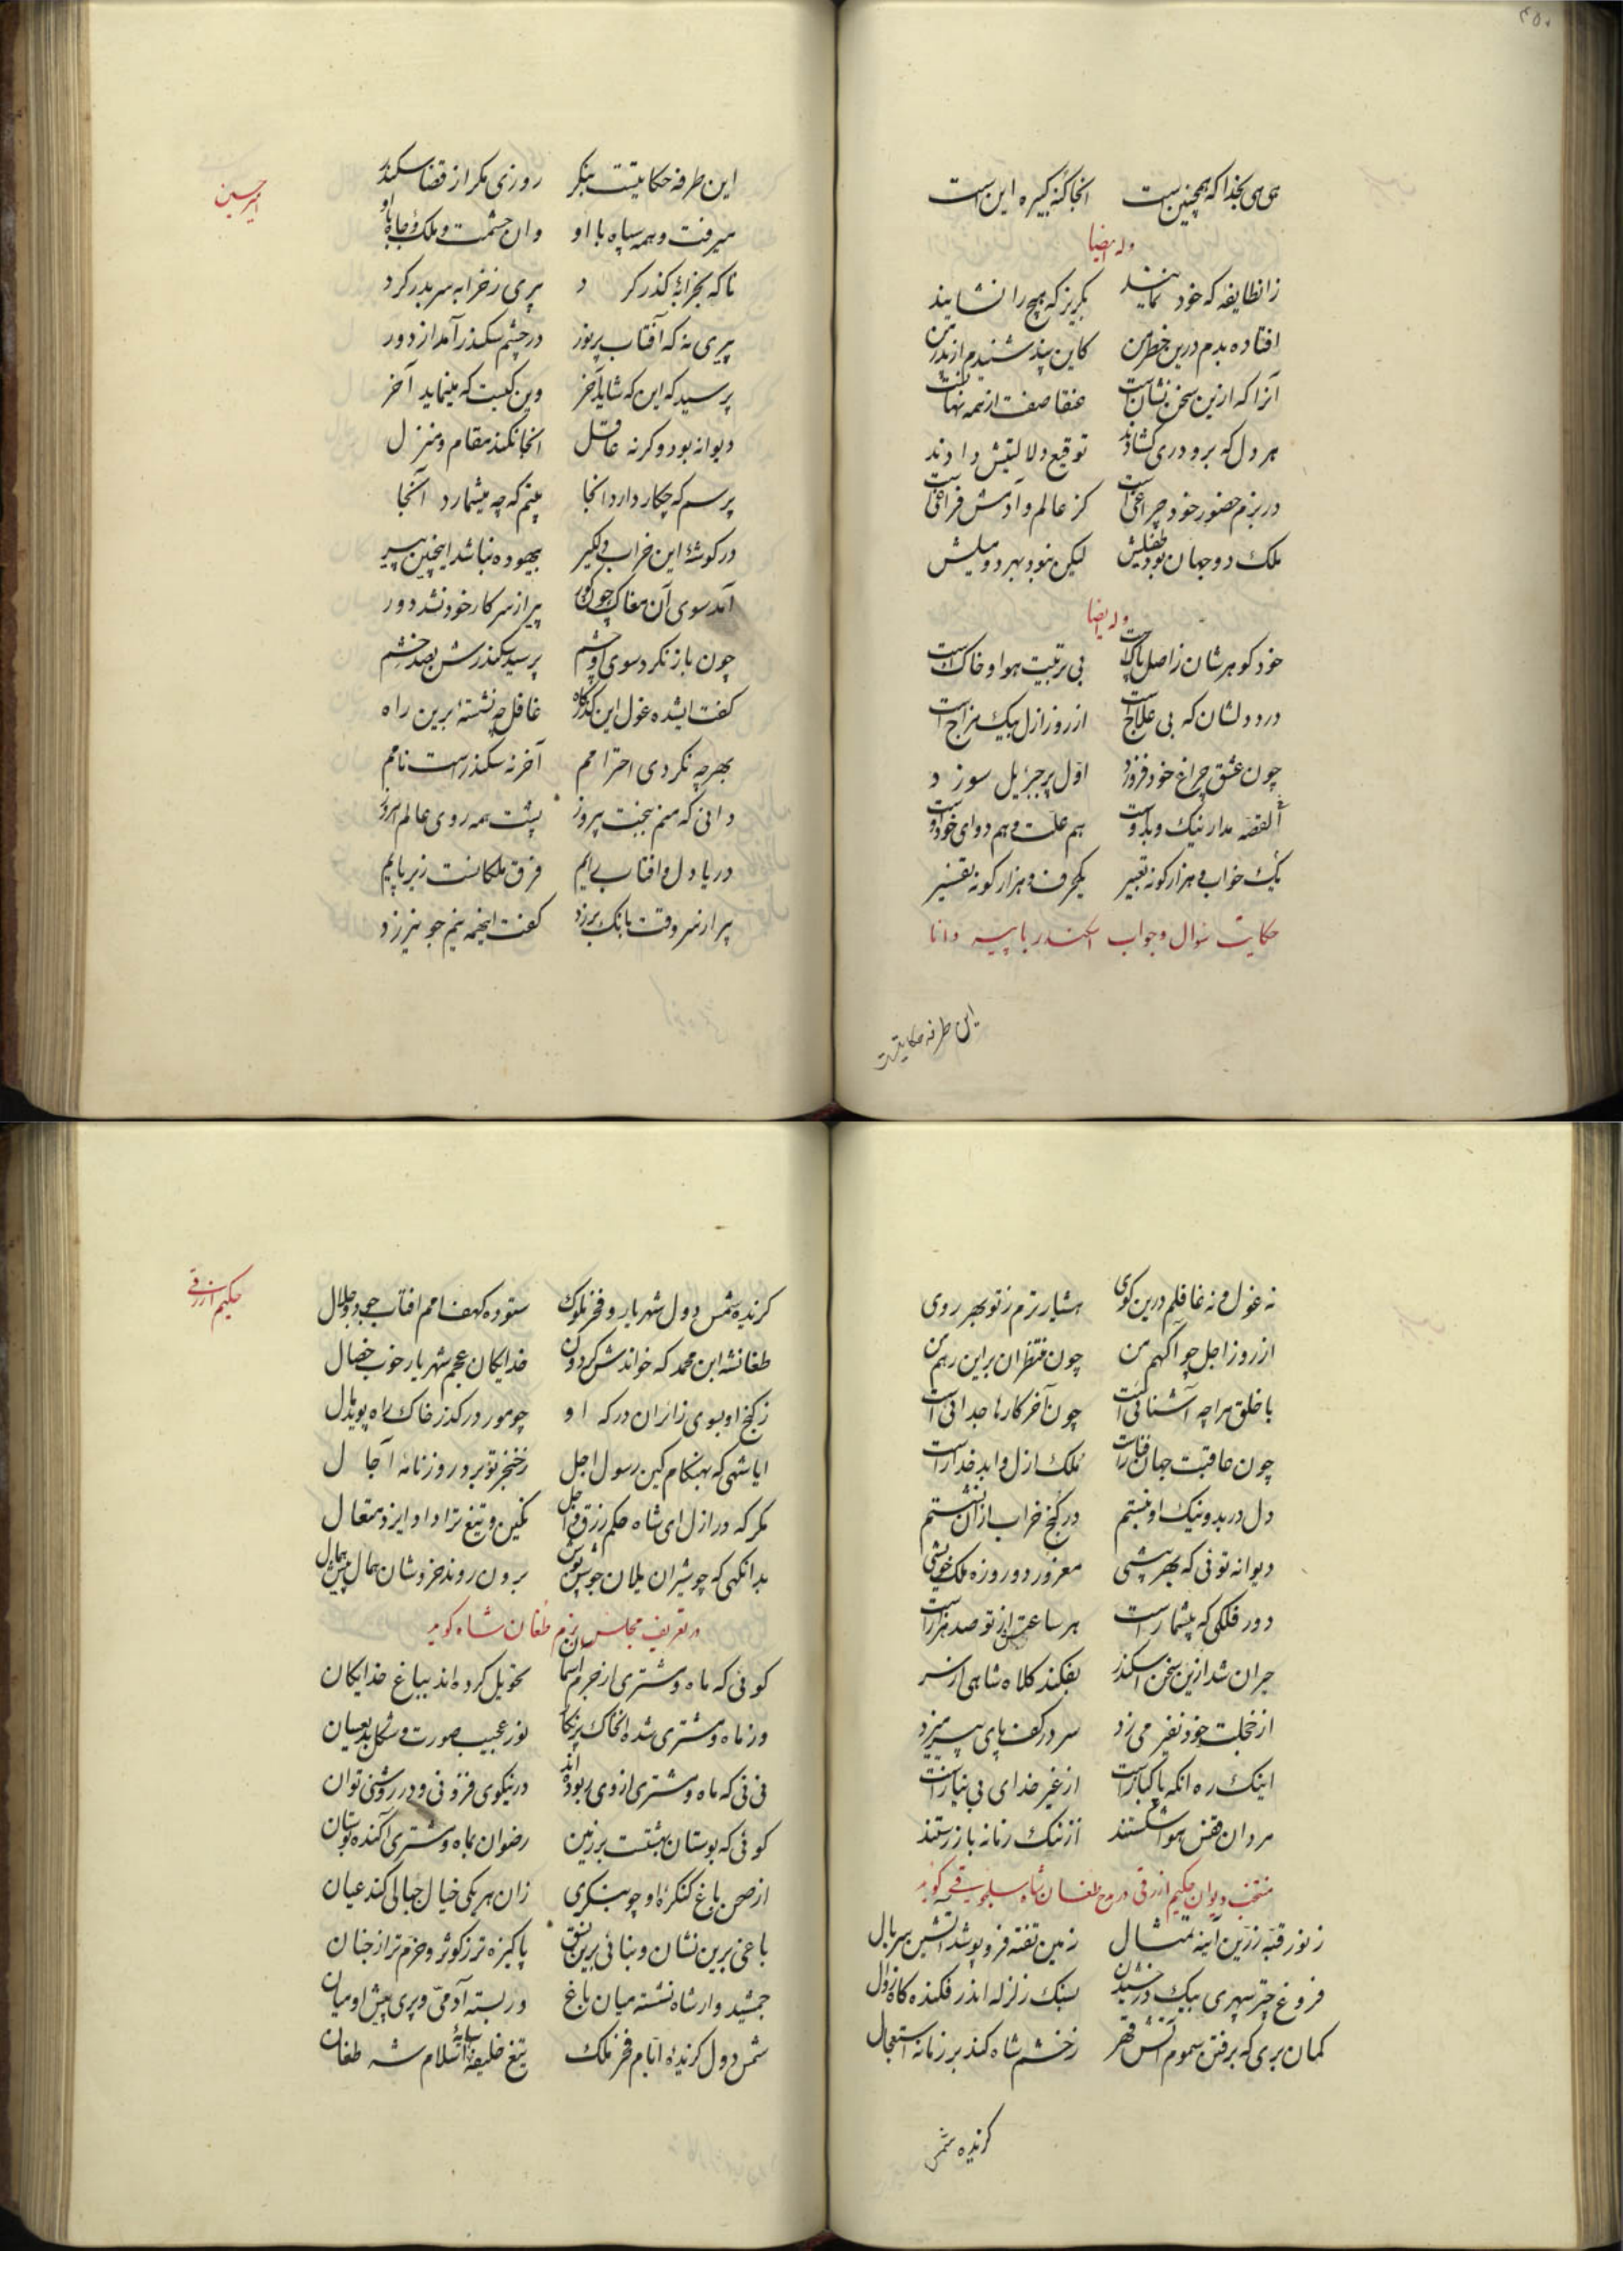 ۴۵۰
هی هی بخدا که همچنین است انجا گنه کبیره این است
وله ایضا
زانطایفه که خود نمایند بگریز که هیچ را نشایند
افتاده بدم درین خطر من کاین پند شنیدم از پدر من
آنرا که ازین سخن نشانست عنقا صفت از همه نهانست
هر دل که برو دری کشادند توقیع ولایتش دادند
در بزم حضور خود چراغی است کز عالم و آدمش فراغی است
ملک دو جهان بود طفیلش لیکن نبود بهر دو میلش
وله ایضا
خود کوهرشان ز اصل پاک است بی تربیت هوا و خاک است
درد دلشان که بی علاج است از روز ازل بیک مزاج است
چون عشق چراغ خود فروزد اول پر جبرئیل سوزد
القصه مدار نیک و بد اوست هم علت و هم دوای خود اوست
یک خواب و هزار کونه تعبیر یکحرف و هزار کونه تفسیر
حکایت سوال و جواب اسکندر با پیر دانا
این طرفه حکایتیست
امیر حسین
این طرفه حکایتیست بنکر روزی مکر از قضا سکندر
میرفت و همه سپاه با او وان حشمت و ملک و جاه با او
ناکه بخرابهٔ گذر کرد پیری ز خرابه سر بدر کرد
پیری نه که آفتاب پر نور در چشم سکندر آمد از دور
پرسید که این که شاید آخر وین کیست که مینماید آخر
دیوانه بود وکرنه عاقل انجا نکند مقام و منزل
پرسم که چکار دارد انجا بینم که چه میشمارد آنجا
در کوشهٔ این خراب دلکیر بیهوده نباشد اینچنین پیر
آمد سوی آن مغاک چون کور پیر از سر کار خود نشد دور
چون باز نکرد سوی او چشم پرسید سکندرش بصد خشم
کفت ایشده غول این کذرکاه غافل چه نشستهٔ برین راه
بهر چه نکردی احترامم آخر نه سکندرست نامم
دانی که منم ببخت پیروز پشت همه روی عالم امروز
دریا دل و افتاب رایم فرق ملکانست زیر پایم
پیر از سر وقت بانک برزد کفت اینهمه نیم جو نیرزد
نه غول و نه غافلم درین کوی هشیارترم ز تو بهر روی
از روز اجل چو آکهم من چون منتظران براین رهم من
با خلق مرا چه آشنائی است چون آخر کارها جدائی است
چون عاقبت جهان فناست ملک ازل و ابد خداراست
دل در بد و نیک او نبستم در کنج خراب ازان نشستم
دیوانه توئی که بهر بیشی مغرور دو روزه ملک خویشی
دور فلکی که بیشمارست هر ساعتش از تو صد هزارست
حیران شد ازین سخن سکندر بفکند کلاه شاهی از سر
از خجلت خود نفیر می زد سر در کف پای پیر میزد
اینک ره انکه پاکبازست از غیر خدای بی نیازست
مردان قفس هوا شکستند از ننک زمانه باز رستند
منتخب دیوان حکیم ازرقی در مدح طغان شاه سلجوقی کوید
ز نور قبهٔ زرین آینه تمثال زمین تفته فرو پوشد اتشین سربال
فروغ چتر سپهری بیک درخشیدن بسنک زلزله اندر فکنده کاه زوال
کمان بری که برفتن سموم آتش قهر ز خشم شاه کند بر زمانه استعجال
کزیده شمس
حکیم ازرقی
کزیده شمس دول شهریار و فخر ملوک ستوده کهف امم افتاب جود و جلال
طغانشه ابن محمد که خواندش کردون خدایکان عجم شهریار خوب خصال
ز کنج او بسوی زائران درکه او چو مور در کذر خاک راه پوید مال
ایا شهی که بهنکام کین رسول اجل ز خنجر تو برد روزنامهٔ آجال
مکر که در ازل ای شاه حکم رزق و اجل نکین و تیغ ترا داد ایزد متعال
بدانکهی که چو شیران یلان جوشن پوش برون روند خروشان همال پیش همال
در تعریف مجلس بزم طغان شاه کوید
کوئی که ماه و مشتری از جرم آسمان تحویل کرده اند بباغ خدایکان
وز ماه و مشتری شده انخاک پر نکار نور عجیب صورت و شکل بدیع سان
نی نی که ماه و مشتری از وی ربوده اند در نیکوی فزونی و در روشنی توان
کوئی که بوستان بهشتست بر زمین رضوان بماه و مشتری آکنده بوستان
از صحن باغ کنکرهٔ او چو بنکری زان هر یکی خیال جمالی کند عیان
باغی برین نشان و بنائی برین نسق پاکیزه تر ز کوثر و خرم تر از جنان
جمشید وار شاه نشسته میان باغ در بسته آدمی و پری پیش او میان
شمس دول کزیدهٔ ایام فخر ملک تیغ خلیفه سایهٔ اسلام شه طغان